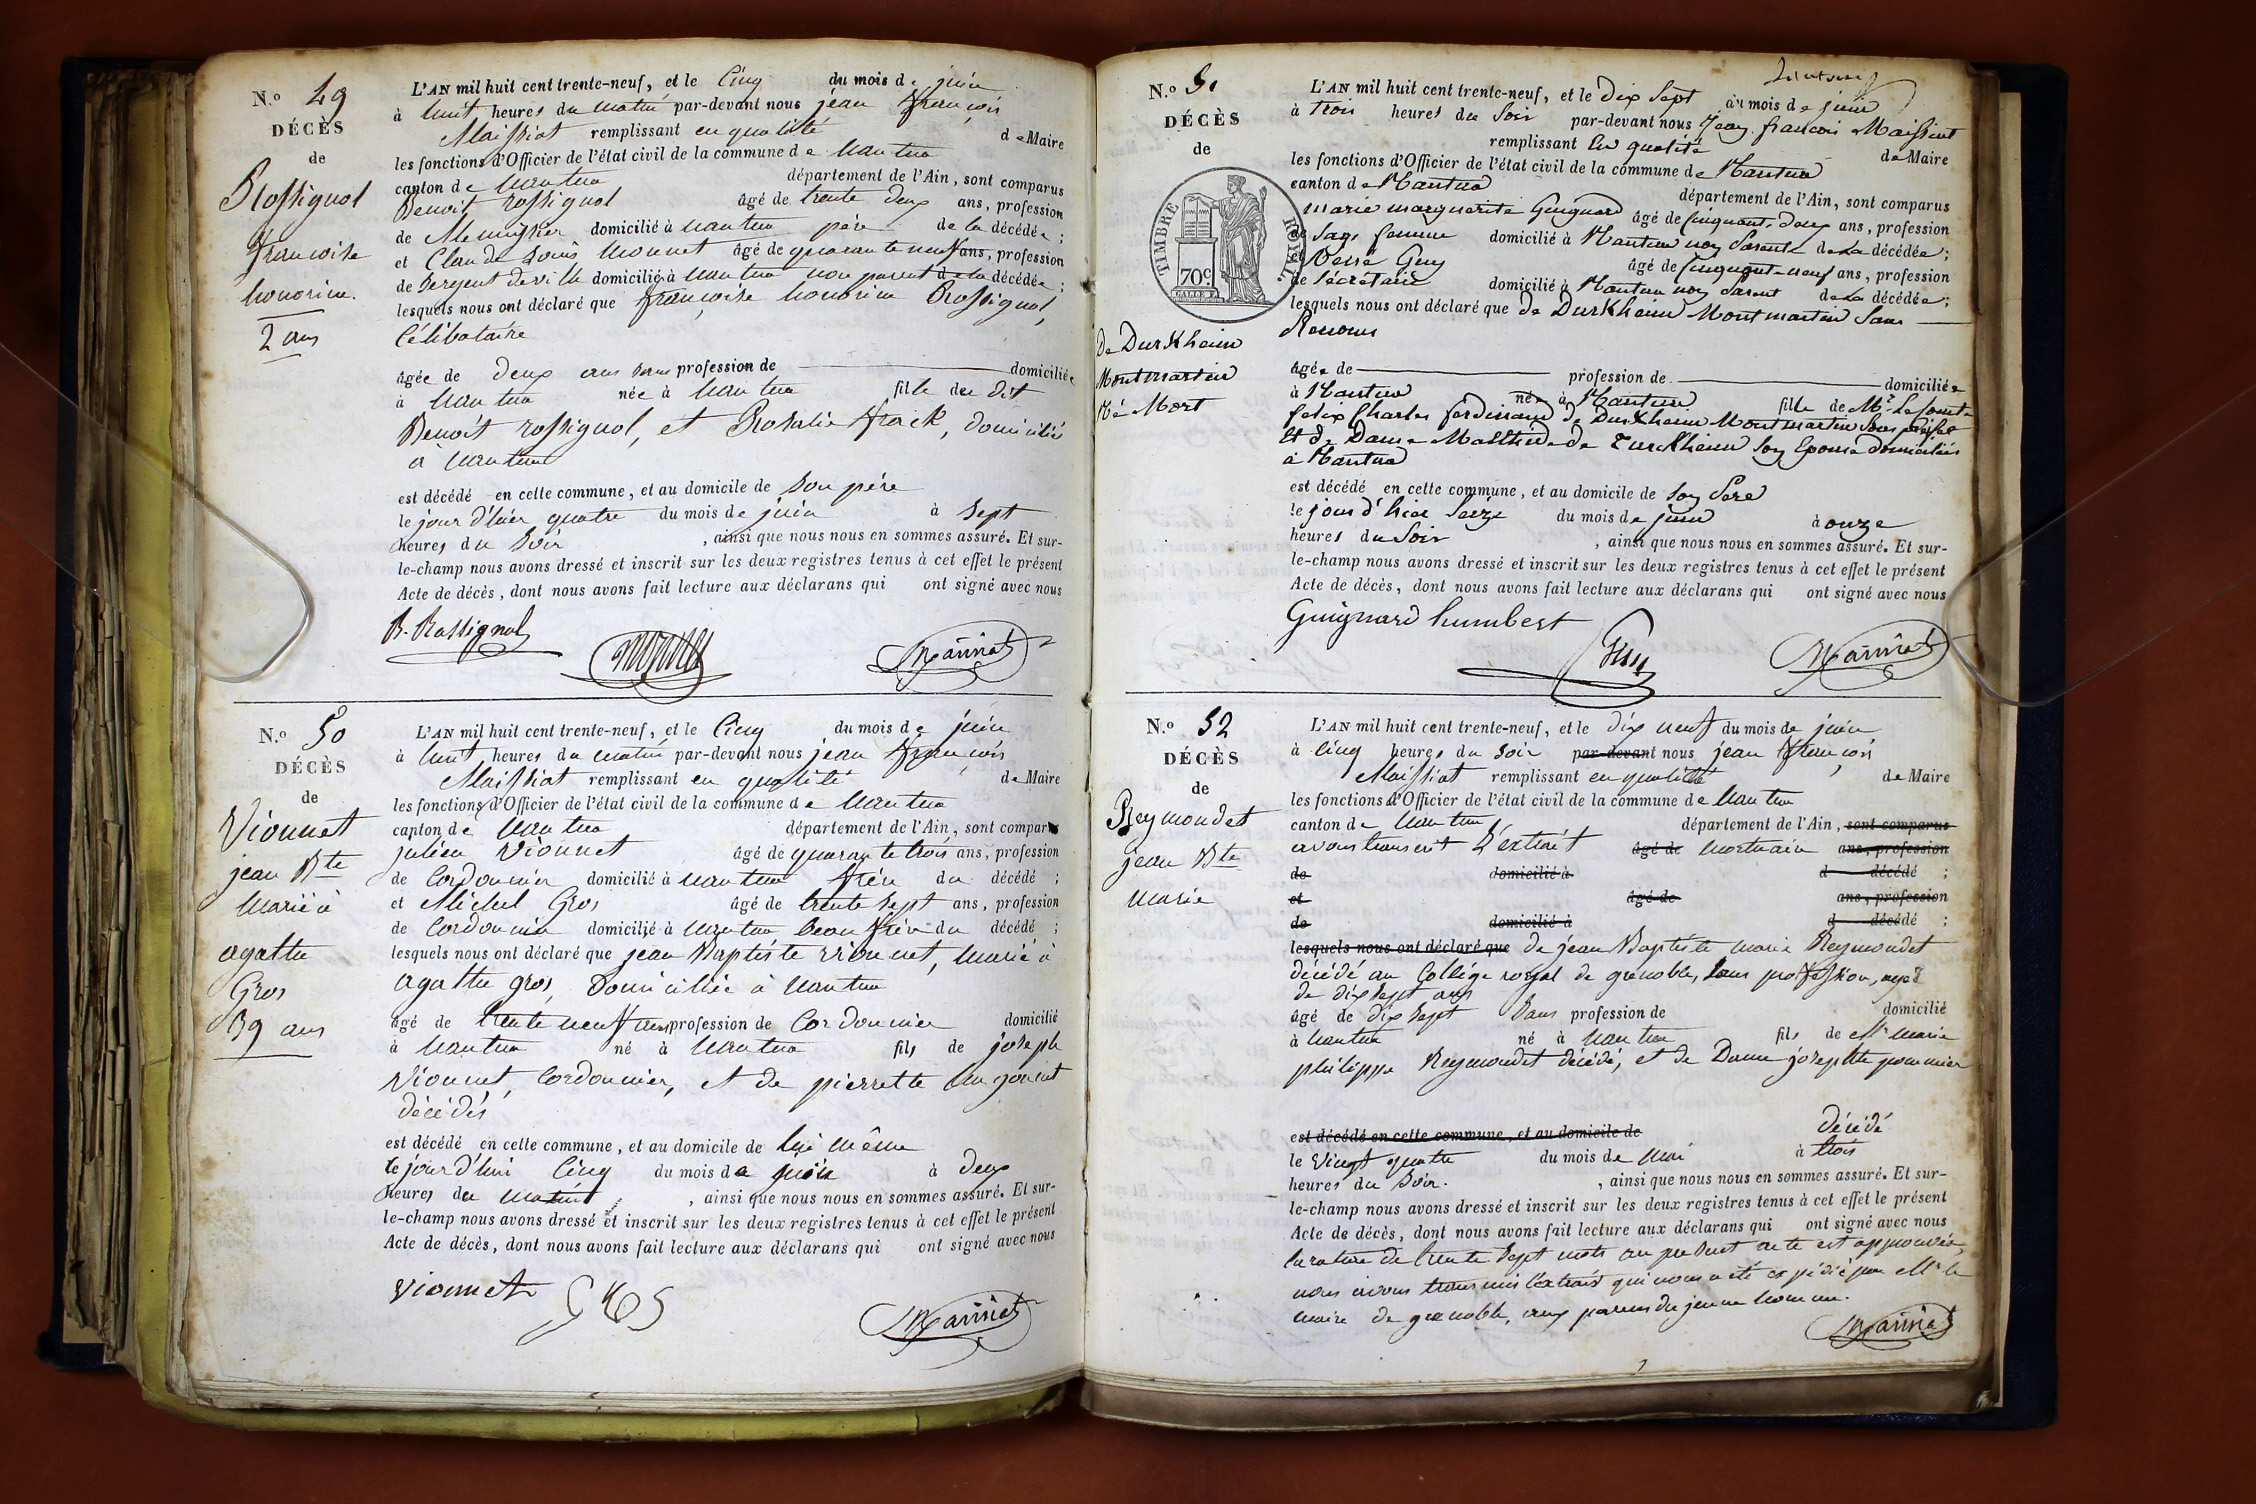 N.o 49
DÉCÈS
de
Rossignol
françoise
honorine.
2 ans
L'AN mil huit cent trente-neuf, et le Cinq du mois de juin
à huit heures du matin par-devant nous jean françois
Maissiat remplissant en qualité de Maire
les fonctions d'Officier de l'état civil de la commune de Nantua
canton de Nantua département de l'Ain, sont comparus
Benoit rossignol âgé de trente deux ans, profession
de Menuisier domicilié à Nantua père de la décédée ;
et Claude Louis Monnet âgé de quarante neuf ans, profession
de Sergent de ville domicilié à Nantua non parent de la décédée ;
lesquels nous ont déclaré que françoise honorine Rossignol,
Célibataire
âgée de deux ans sans profession de domiciliée
à Nantua née à Nantua fille du dit
Benoit rossignol, et Rosalie frack, domiciliés
à Nantua
est décédé en cette commune, et au domicile de son père
le jour d'hier quatre du mois de juin à sept
heures du soir , ainsi que nous nous en sommes assuré. Et sur-
le-champ nous avons dressé et inscrit sur les deux registres tenus à cet effet le présent
Acte de décès, dont nous avons fait lecture aux déclarans qui ont signé avec nous
B. Rossignol Monnet Maissiat
N.o 50
DÉCÈS
de
Vionnet
jean Bte
Marié à
agathe
Gros
39 ans
L'AN mil huit cent trente-neuf, et le Cinq du mois de juin
à huit heures du matin par-devant nous jean françois
Maissiat remplissant en qualité de Maire
les fonctions d'Officier de l'état civil de la commune de Nantua
canton de Nantua département de l'Ain, sont comparus
julien Vionnet âgé de quarante trois ans, profession
de Cordonnier domicilié à Nantua frère du décédé ;
et Michel Gros âgé de trente sept ans, profession
de Cordonnier domicilié à Nantua beau frère du décédé ;
lesquels nous ont déclaré que jean Baptiste vionnet, marié à
agathe gros, Domiciliée à Nantua
âgé de trente neuf ans profession de Cordonnier domicilié
à Nantua né à Nantua fils de joseph
Vionnet, Cordonnier, et de pierrette
décédés
est décédé en cette commune, et au domicile de lui même
le jour d'hui Cinq du mois de juin à deux
heures du matin , ainsi que nous nous en sommes assuré. Et sur-
le-champ nous avons dressé et inscrit sur les deux registres tenus à cet effet le présent
Acte de décès, dont nous avons fait lecture aux déclarans qui ont signé avec nous
vionnet gros Maissiat
N.o 51
DÉCÈS
de
TIMBRE ROYAL.
70c.
de Durkheim
Montmartin
Né Mort
L'AN mil huit cent trente-neuf, et le dix sept du mois de juin
à trois heures du Soir par-devant nous Jean françois Maissiat
remplissant En qualité de Maire
les fonctions d'Officier de l'état civil de la commune de Nantua
canton de Nantua département de l'Ain, sont comparus
Marie marguerite Guignard âgé de Cinquante deux ans, profession
de Sage femme domicilié à Nantua non Parente de La décédée ;
et Guy âgé de Cinquante-neuf ans, profession
de Sécrétaire domicilié à Nantua non Parent de La décédée ;
lesquels nous ont déclaré que de Durkheim Montmartin Sans
Prénoms
âgée de profession de domiciliée
à Nantua née à Nantua fille de Mr. Le Comte
felix Charles ferdinand de Durkheim Montmartin Sous préfet
Et de Dame Mathilde de Turckheim son Epouse domiciliés
à Nantua
est décédé en cette commune, et au domicile de son Père
le jour d'hier Seize du mois de juin à onze
heures du Soir , ainsi que nous nous en sommes assuré. Et sur-
le-champ nous avons dressé et inscrit sur les deux registres tenus à cet effet le présent
Acte de décès, dont nous avons fait lecture aux déclarans qui ont signé avec nous
Guignard humbert Guy Maissiat
N.o 52
DÉCÈS
de
Reymondet
jean Bte
marie
L'AN mil huit cent trente-neuf, et le dix neuf du mois de juin
à cinq heures du soir par-devant nous jean françois
Maissiat remplissant en qualité de Maire
les fonctions d'Officier de l'état civil de la commune de Nantua
canton de Nantua département de l'Ain, sont comparus
avons transcrit L'extrait âgé de mortuaire ans, profession
de domicilié à d décédé ;
et âgé de ans, profession
de domicilié à d décédé ;
lesquels nous ont déclaré que de jean Baptiste marie Reymondet
décédé au Collège royal de grenoble, sans profession, agé
de dix sept ans
âgé de dix sept Sans profession de domicilié
à Nantua né à Nantua fils de Mr. marie
philippe Reymondet décédé, et de Dame josephte pommier
est décédé en cette commune, et au domicile de Décédé
le vingt quatre du mois de mai à trois
heures du soir. , ainsi que nous nous en sommes assuré. Et sur-
le-champ nous avons dressé et inscrit sur les deux registres tenus à cet effet le présent
Acte de décès, dont nous avons fait lecture aux déclarans qui ont signé avec nous
la rature de trente sept mots au présent acte est approuvée,
nous avons transmis l'extrait qui nous a été expédié par Mr. le
maire de grenoble, aux parens du jeune homme.
Maissiat